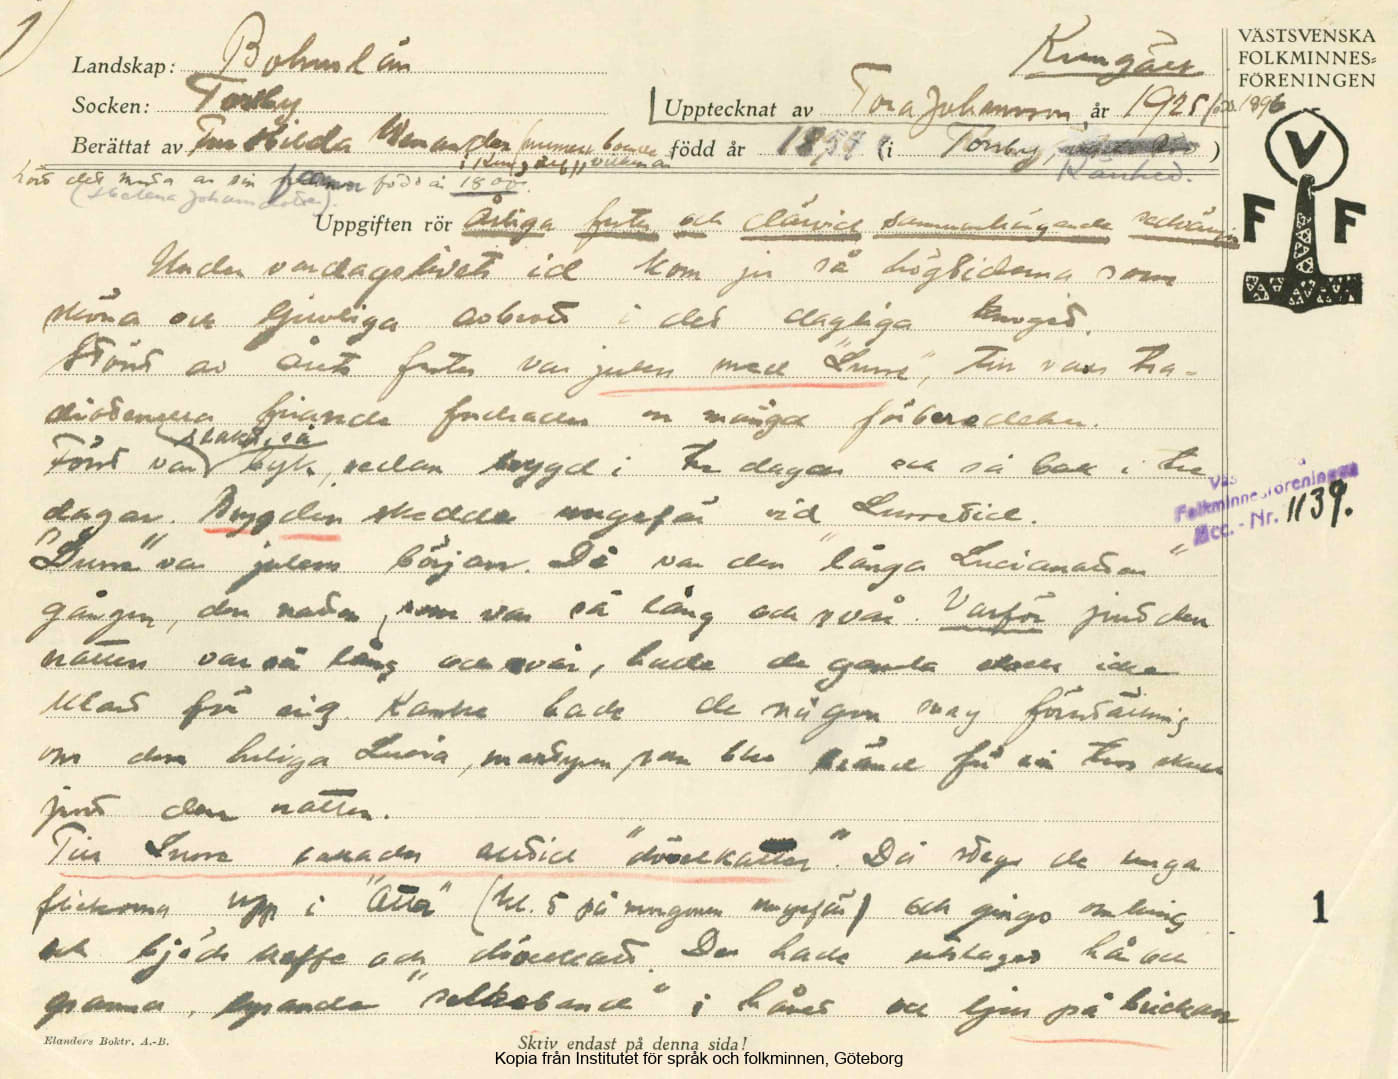 VÄSTSVENSKA
FOLKMINNES=
FÖRENINGEN
V
F F
Landskap: Bohuslän
Kungälv
Socken: Torsby
Upptecknat av Tora Johansson, år 1925
Berättat av Fru Hilda
född år (i Torsby, )
Kärrhed.
hört det av sin född år 1800.
(Helena Johansdotter).
Uppgiften rör Årliga fester och därvid sammanhängande sedvänjor
Under vardagslivets id kom ju så högtiderna som
sköna och ljuvliga avbrott i det dagliga knoget.
Störst av årets fester var julen med "Lusse", den vars tra-
ditionella firande fordrade en mängd förberedelser.
slakt, så
Först var byk, sedan brygd i tre dagar och så bak i tre
dagar. Brygden skedde ungefär vid Lussetid.
"Lusse" var julens början. Då var den "långa Lucianatten"
gången, den natten, som var så lång och svår. Varför just den
natten var så lång och svår, hade de gamla icke
klart för sig. Kanske hade de någon svag föreställning
om den heliga Lucia, martyren, som blev bränd för sin tros skull
just den natten.
Till Lusse bakades alltid "dövelkatter". Då stego de unga
flickorna upp i "Otta" (kl. 5 på morgonen ungefär) och gingo omkring
och bjödo kaffe och dövelkatt. De hade utslaget hår och
granna, lysande "silkeband" i håret och ljus på brickan
Folkminnesföreningen
Acc. - Nr. 1139.
1
Elanders Boktr. A.-B.
Skriv endast på denna sida!
Kopia från Institutet för språk och folkminnen, Göteborg